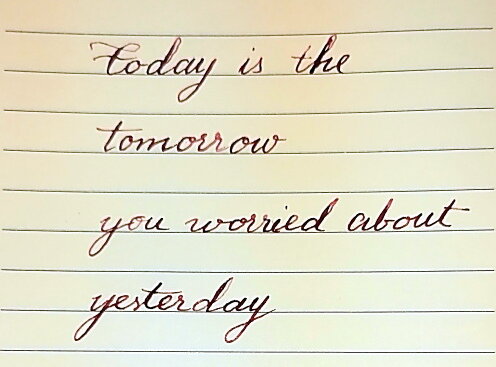 Today is the
tomorrow
you worried about
yesterday